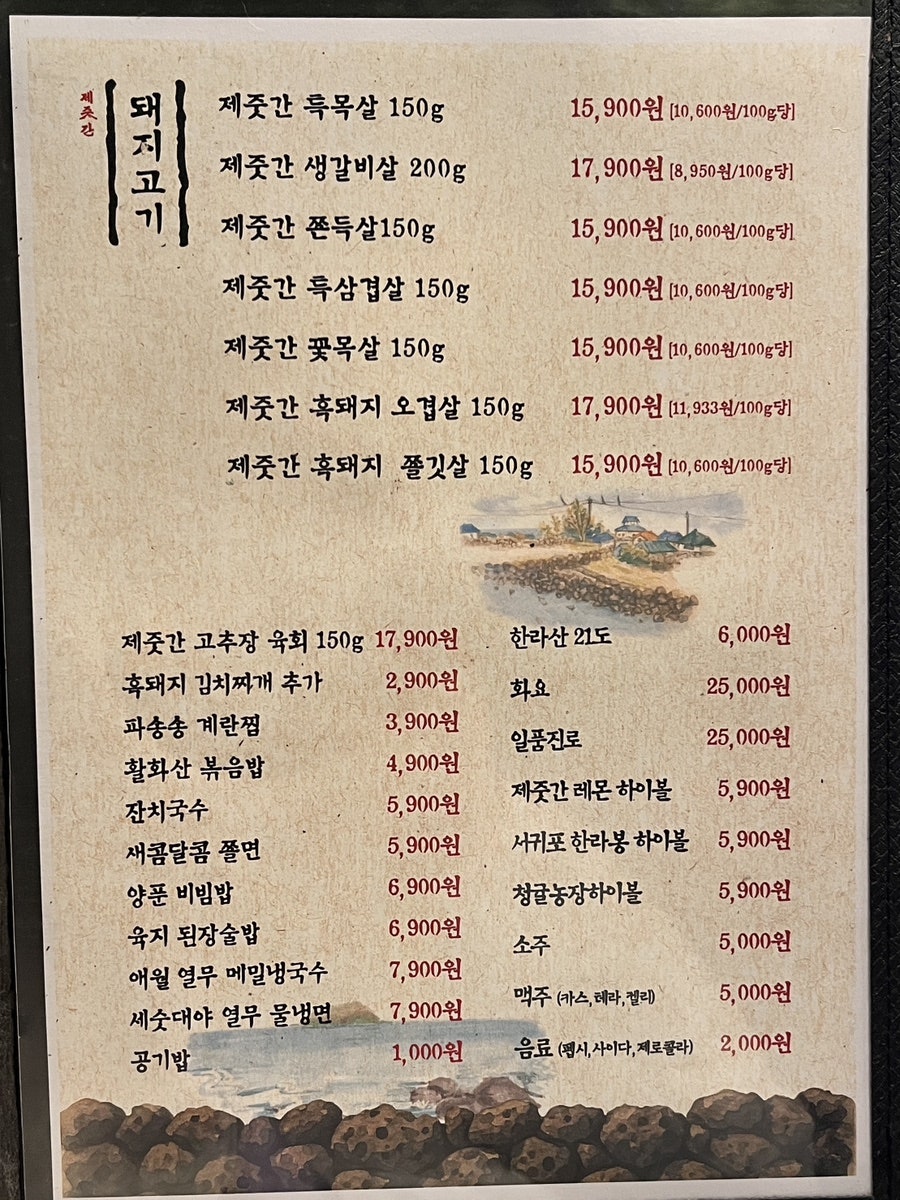 제줏간
돼지고기
제줏간 특목살 150g 15,900원 [10,600원/100g당]
제줏간 생갈비살 200g 17,900원 [8,950원/100g당]
제줏간 쫀득살150g 15,900원 [10,600원/100g당]
제줏간 특삼겹살 150g 15,900원 [10,600원/100g당]
제줏간 꽃목살 150g 15,900원 [10,600원/100g당]
제줏간 흑돼지 오겹살 150g 17,900원 [11,933원/100g당]
제줏간 흑돼지 쫄깃살 150g 15,900원 [10,600원/100g당]
제줏간 고추장 육회 150g 17,900원
흑돼지 김치찌개 추가 2,900원
파송송 계란찜 3,900원
활화산 볶음밥 4,900원
잔치국수 5,900원
새콤달콤 쫄면 5,900원
양푼 비빔밥 6,900원
육지 된장술밥 6,900원
애월 열무 메밀냉국수 7,900원
세숫대야 열무 물냉면 7,900원
공기밥 1,000원
한라산 21도 6,000원
화요 25,000원
일품진로 25,000원
제줏간 레몬 하이볼 5,900원
서귀포 한라봉 하이볼 5,900원
청귤농장하이볼 5,900원
소주 5,000원
맥주 (카스,테라,켈리) 5,000원
음료 (펩시,사이다,제로콜라) 2,000원